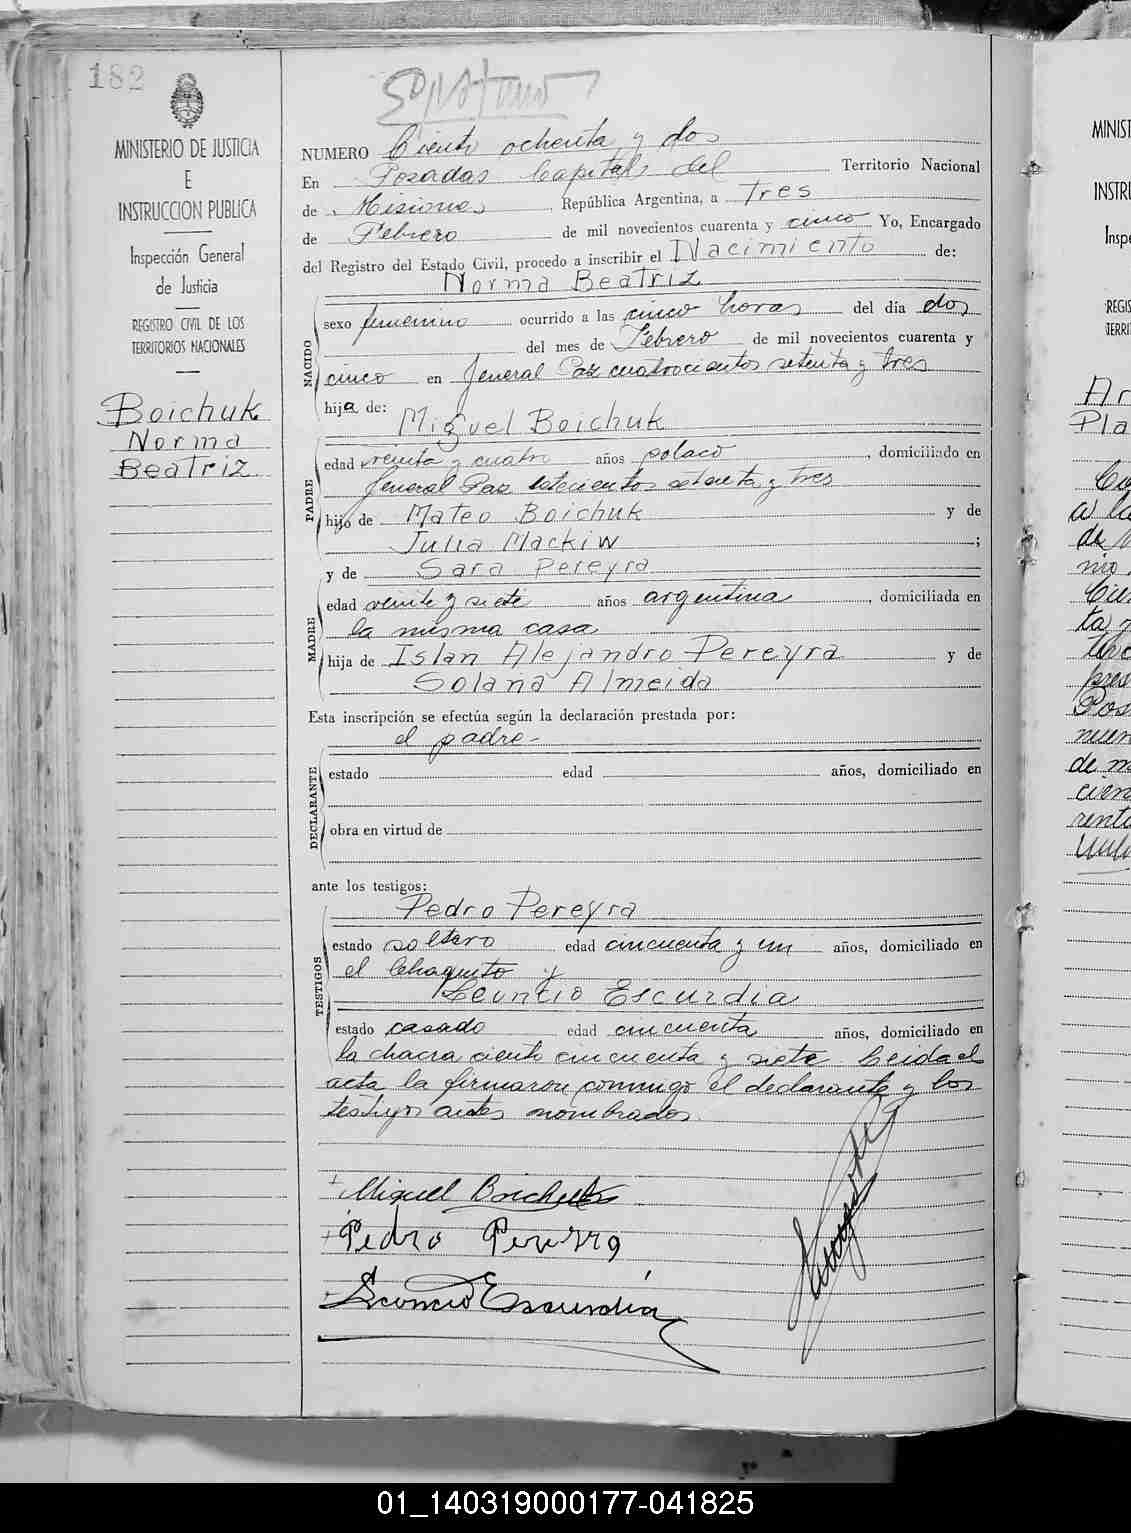 182
MINISTERIO DE JUSTICIA
E
INSTRUCCION PUBLICA
Inspección General
de Justicia
REGISTRO CIVIL DE LOS
TERRITORIOS NACIONALES
Boichuk
Norma
Beatriz
NUMERO Ciento ochenta y dos
En Posadas Capital del Territorio Nacional
de Misiones República Argentina, a Tres
de Febrero de mil novecientos cuarenta y cinco Yo, Encargado
del Registro del Estado Civil, procedo a inscribir el Nacimiento de:
Norma Beatriz
NACIDO
sexo femenino ocurrido a las cinco horas del día dos
del mes de Febrero de mil novecientos cuarenta y
cinco en General Paz cuatrocientos setenta y tres
hija de: Miguel Boichuk
PADRE
edad treinta y cuatro años polaco, domiciliado en
General Paz setenta y tres
hijo de Mateo Boichuk y de
Julia Mackiw;
y de Sara Pereyra
MADRE
edad veinte y siete años argentina, domiciliada en
la misma casa
hija de Islan Alejandro Pereyra y de
Solana Almeida
Esta inscripción se efectúa según la declaración prestada por:
el padre-
DECLARANTE
estado edad años, domiciliado en
obra en virtud de
ante los testigos:
TESTIGOS
Pedro Pereyra
estado soltero edad cincuenta y un años, domiciliado en
el Chaquito y
Leoncio Escurdia
estado casado edad cincuenta años, domiciliado en
la chacra ciento cincuenta y siete. Leida el
acta la firmaron conmigo el declarante y los
testigos antes nombrados.
Miguel Boichuk
Pedro Pereyra
Leoncio Escurdia
MINIST
INSTRU
Inspe
REGIS
TERRI
Ar
Pla
a la
de
Pos
de m
cien
renta
01_140319000177-041825